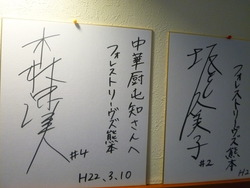 中華厨屯知さんへ
フォレストリーヴズ熊本
#4
H22.3.10
フォレストリーヴズ熊本
久美子
#2